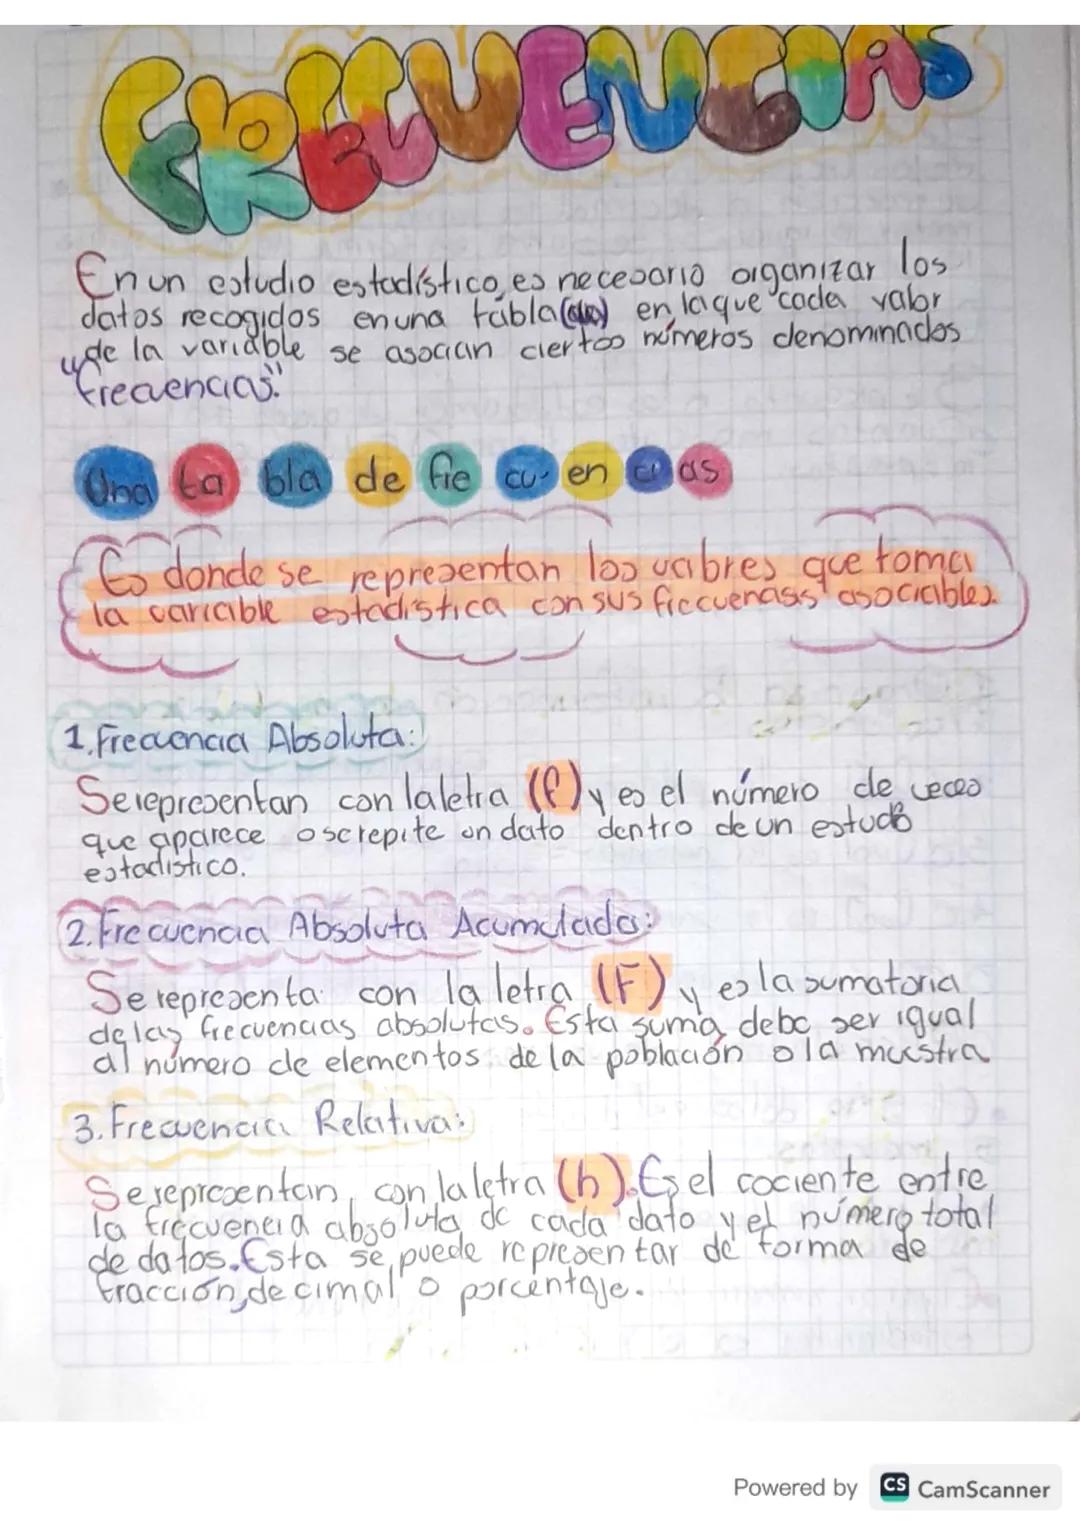 FRECUENCIAS
En un estudio estadístico, es necesario organizar los
datos recogidos en una tabla en la que cada valor
de la variable se asocian ciertos números denominados
"frecuencias."
Una ta bla de fre cu en ci as
Es donde se representan los valores que toma
la variable estadística con sus freccuenasis asociables.
1. Frecuencia Absoluta:
Se representan con la letra (f) y es el número de veces
que aparece o se repite un dato dentro de un estudio
estadistico.
2. Frecuencia Absoluta Acumulada:
Se representa con la letra (F) y es la sumatoria
de las frecuencias absolutas. Esta suma debe ser igual
al número de elementos de la población o la muestra
3. Frecuencia Relativa:
Se representan, con la letra (h). Es el cociente entre
la frecuencia absoluta de cada dato y el número total
de datos. Esta se puede representar de forma de
fracción, decimal o porcentaje.
Powered by CS CamScanner